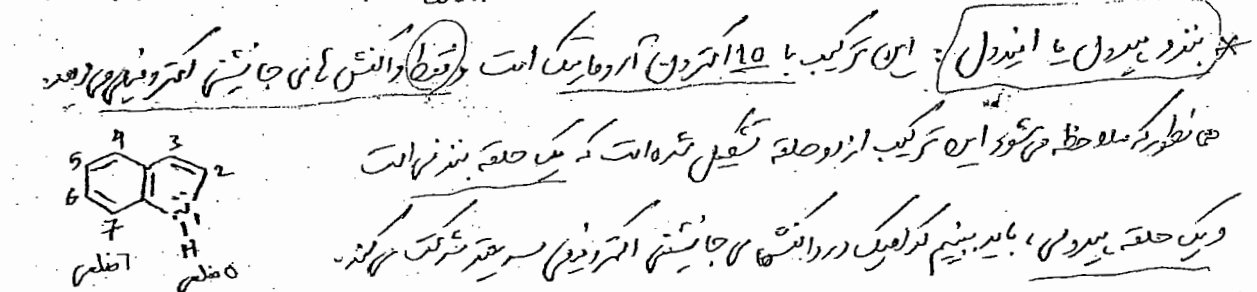 * بنزو پیرول یا ایندول : این ترکیب با ۱۰ الکترون آروماتیک است و فقط واکنش های جانشینی الکتروفیلی می دهد.
همانطور که ملاحظه می شود این ترکیب از دو حلقه تشکیل شده است که یک حلقه بنزنی است
و یک حلقه پیرولی ، باید ببینیم کدامیک در واکنشهای جانشینی الکتروفیلی سریعتر شرکت می کند.
4 3
5 2
6
7 N 1
H
۶ ضلعی ۵ ضلعی